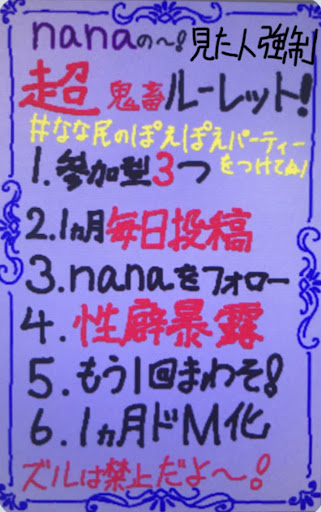 nanaの〜! 見た人強制
超鬼畜ルーレット!
#なな尻のぽえぽえパーティー
をつけてね!
1.参加型3つ
2.1ヵ月毎日投稿
3.nanaをフォロー
4.性癖暴露
5.もう1回まわそ!
6.1ヵ月ドM化
ズルは禁止だよ〜!